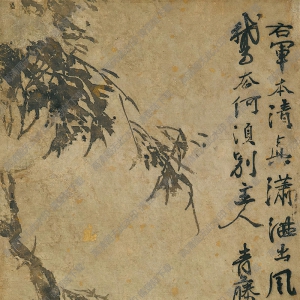 右軍本清真瀟洒出風
鵞去何須別主人 青藤